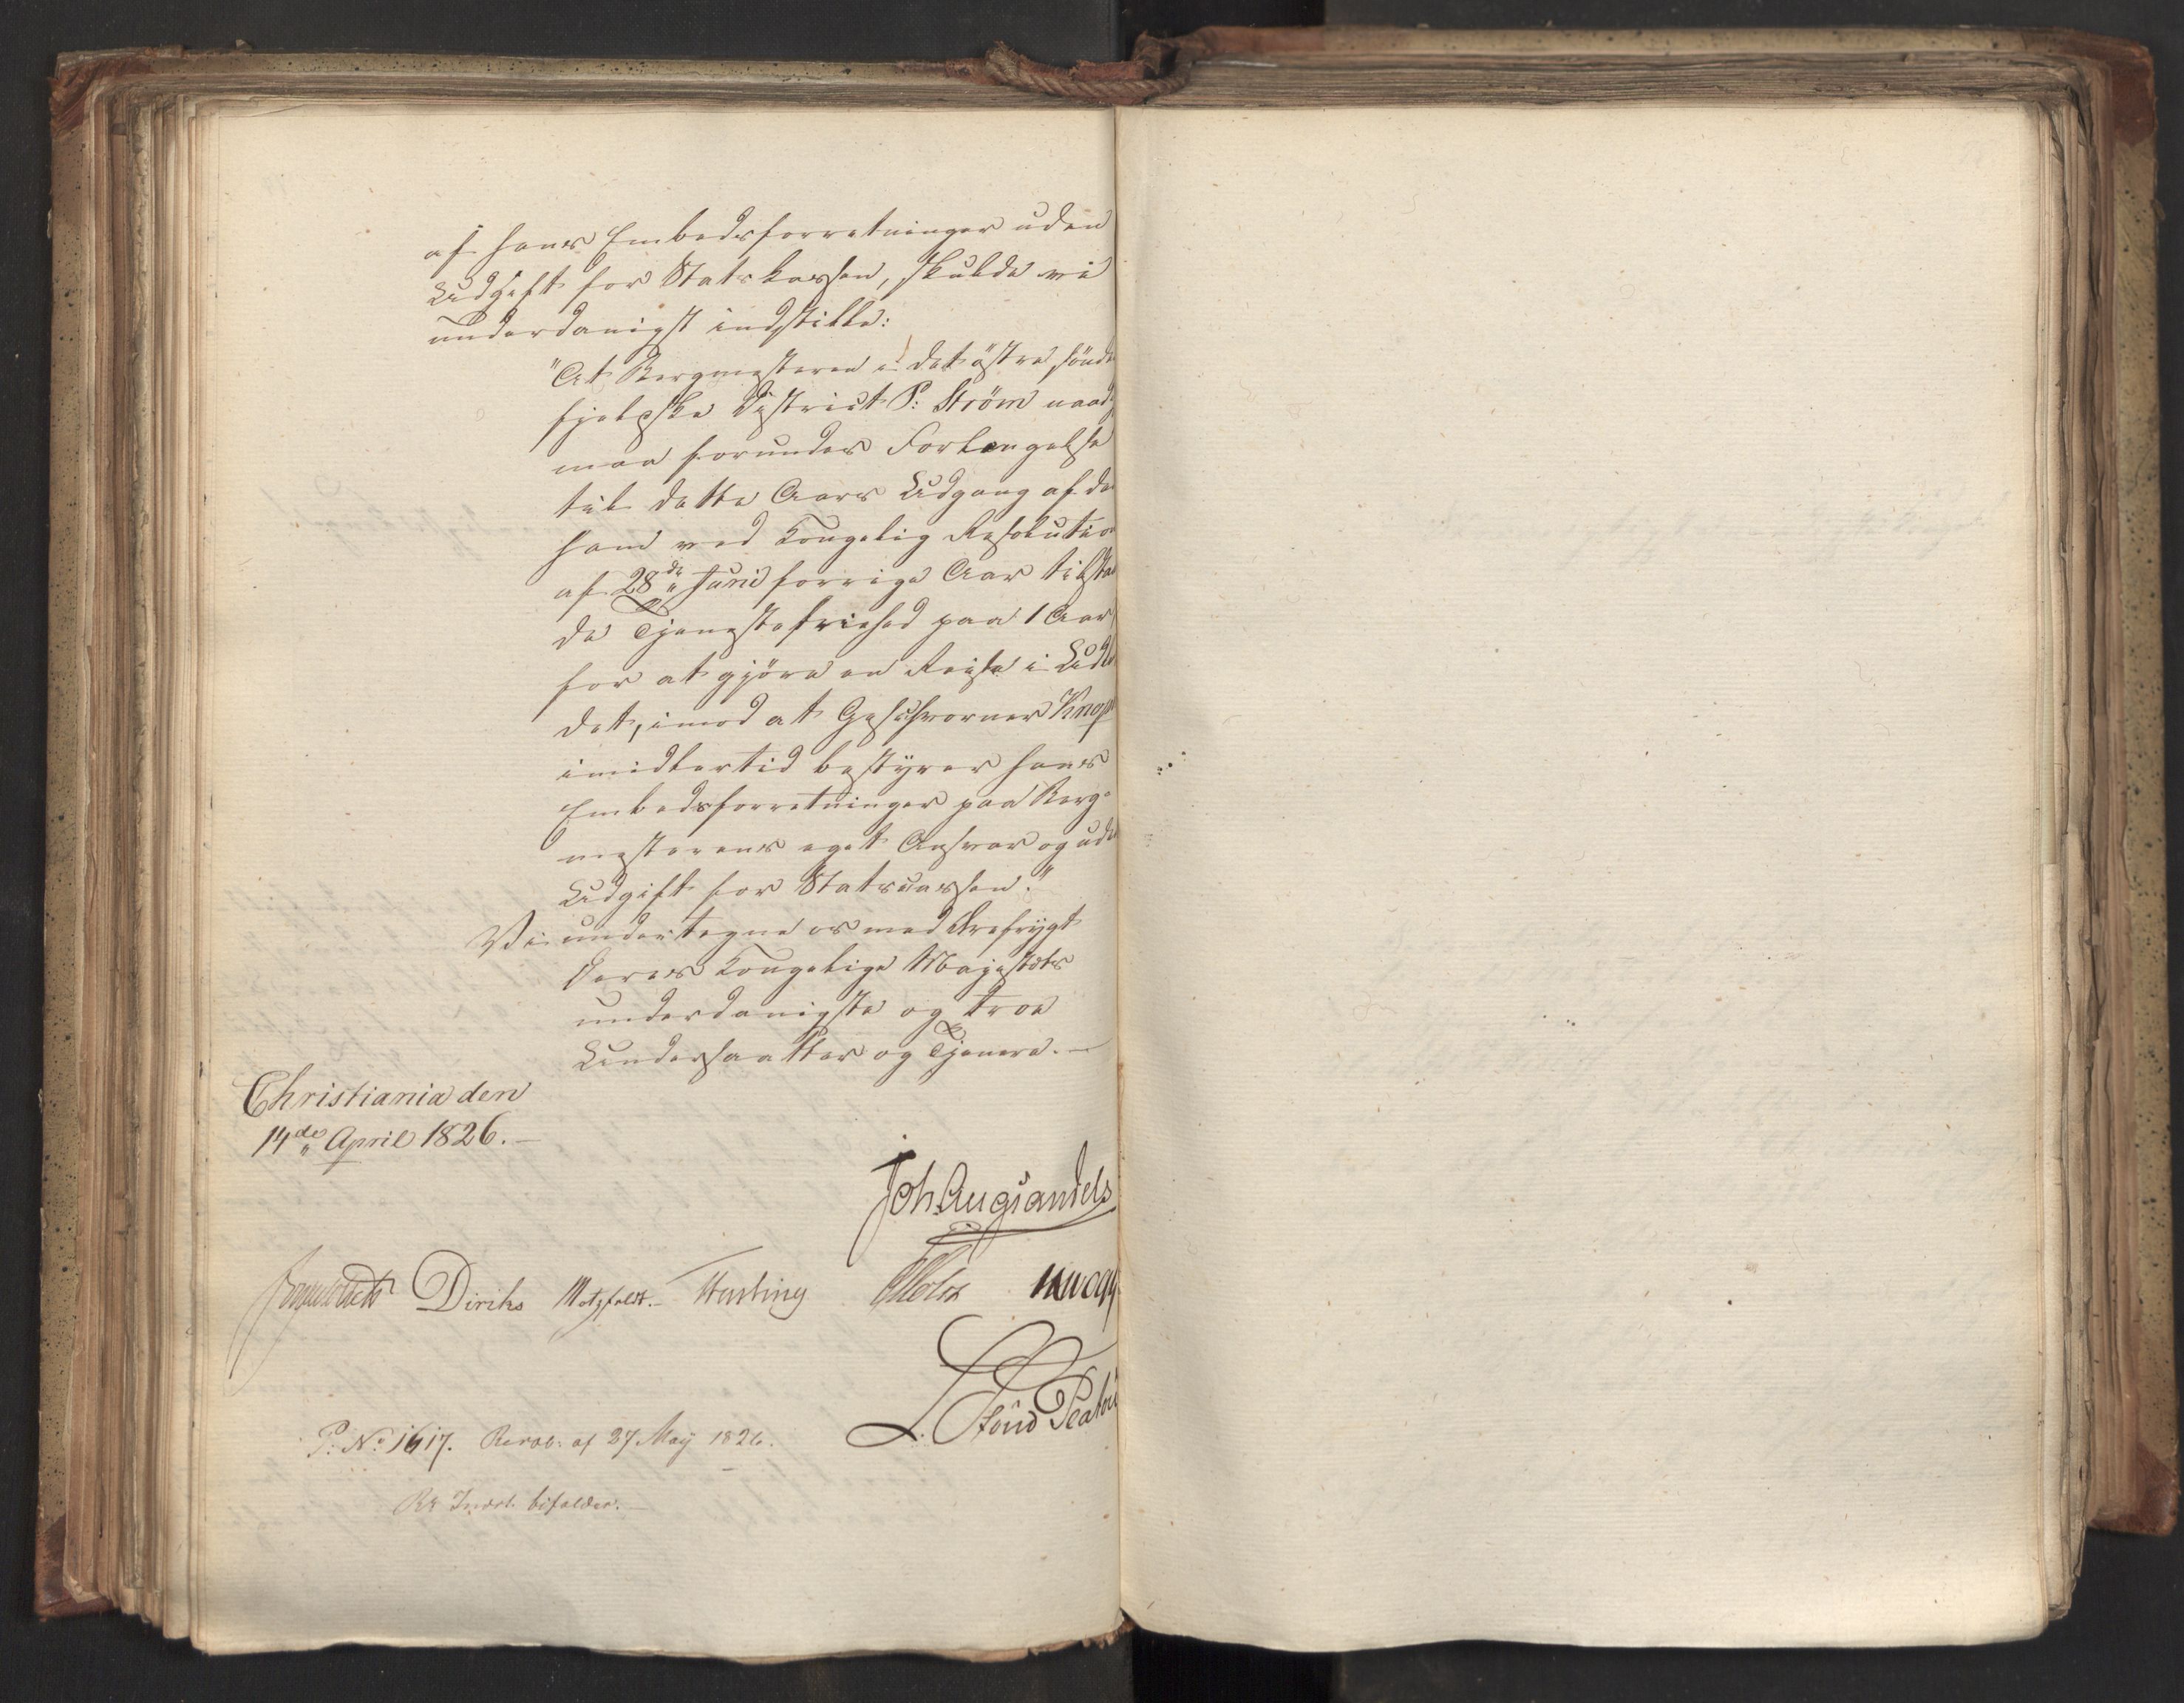 af hans Embedsforretninger uden
Udgift for Statskassen, skulde vi
underdanigst indstille:
"At Bergmesteren i det östre sönden
fjeldske District P: Ström naad
maa forundes Forlængelse
til dette Aars Udgang af den
ham ved Kongelig Resolution
af 28de Juni forrige Aar tilstaa
de Tjenestefrihed paa 1 Aar
for at gjöre en Reise i Udlan
det, imod at Geschworner Knoph
imidlertid bestyrer hans
Embedsforretninger paa Berg-
mesterens eget Ansvar og uden
Udgift for Statscassen."
Vi undertegne os med Ærefrygt
Deres Kongelige Majestæts
underdanigste og troe
Undersaatter og Tjenere. —
Christiania den
14de April 1826. —
Joh Aug Sandels
Diriks Motzfeldt. — Hersting Holst Krogh
P: No 1617. Resol: af 27 May 1826.
Rs Indst. bifaldes. —